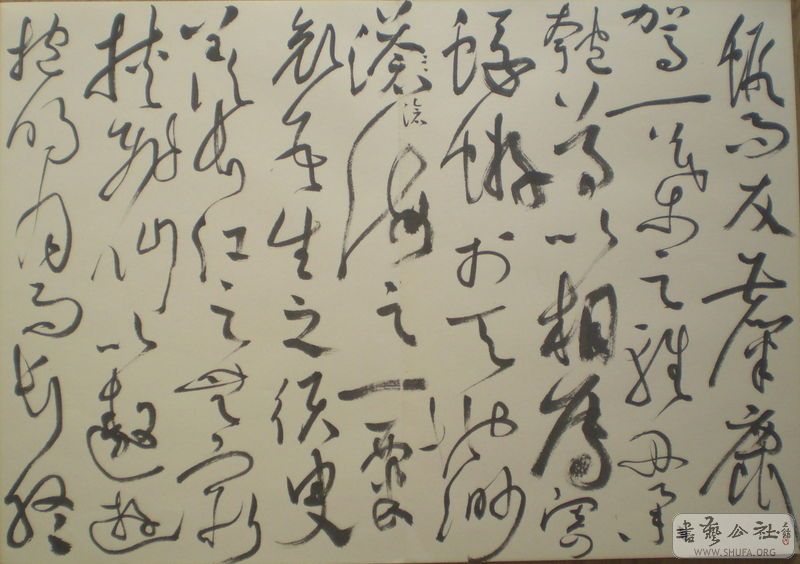 蝦而友麋鹿
駕一葉之扁舟舉
匏尊以相屬寄
蜉蝣於天地渺
滄海之一粟
哀吾生之須臾
羨長江之無窮
挾飛仙以遨遊
抱明月而長終
書藝公社
WWW.SHUFA.ORG